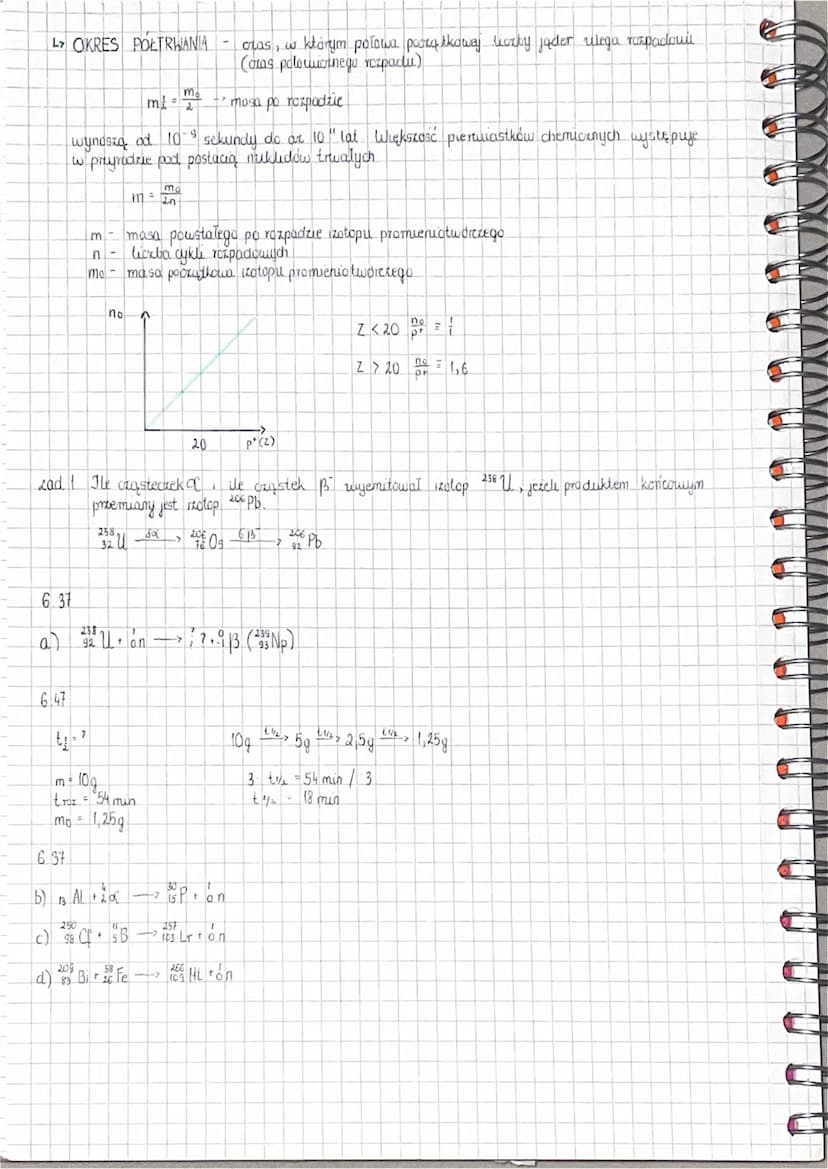 ↳ OKRES PÓŁTRWANIA - czas, w którym połowa początkowej liczby jąder ulega rozpadowi
(czas połowicznego rozpadu)
m½ = m₀/2 -> masa po rozpadzie
wynoszą od 10⁻⁹ sekundy do az 10¹¹ lat. Większość pierwiastków chemicznych występuje
w przyrodzie pod postacią nuklidów trwałych
m = m₀/2n
m - masa powstałego po rozpadzie izotopu promieniotwórczego
n - liczba cykli rozpadowych
m₀ - masa początkowa izotopu promieniotwórczego
n₀
Z < 20 n₀/p⁺ = 1/1
Z > 20 n₀/p⁺ = 1,6
20 p⁺(Z)
zad. 1 Ile cząsteczek α i ile cząstek β⁻ wyemitował izotop ²³⁸U, jeżeli produktem końcowym
przemiany jest izotop ²⁰⁶Pb.
²³⁸₉₂U —8α→ ²⁰⁶₇₆Os —6β⁻→ ²⁰⁶₈₂Pb
6.37
a) ²³⁸₉₂U + ¹₀n —> ?? + ⁰₋₁β (²³⁹₉₃Np)
6.47
t½ = ?
10g —t1/2→ 5g —t1/2→ 2,5g —t1/2→ 1,25g
m = 10g
3 · t1/2 = 54 min / 3
t roz = 54 min
t1/2 = 18 min
m₀ = 1,25g
6.37
b) ₁₃Al + ⁴₂α —> ³⁰₁₅P + ¹₀n
c) ²⁵⁰₉₈Cf + ¹¹₅B —> ²⁵⁷₁₀₃Lr + ¹₀n
d) ²⁰⁹₈₃Bi + ⁵⁸₂₆Fe —> ²⁶⁶₁₀₉Mt + ¹₀n